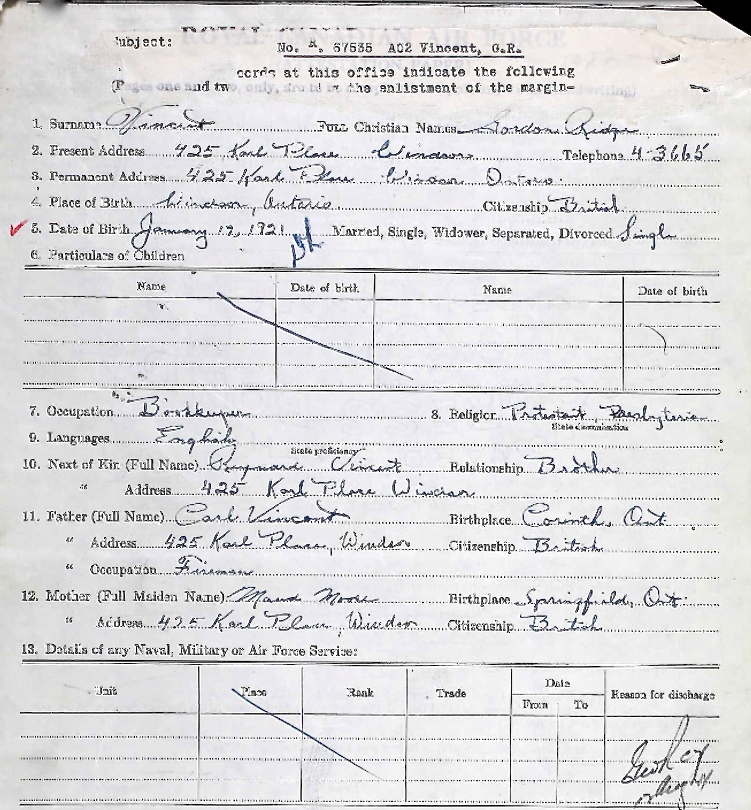 ROYAL CANADIAN AIR FORCE
Subject: No. R. 67535 AC2 Vincent, G.R.
cords at this office indicate the following
(P ages one and two, only, are to the enlistment of the margin-
1. Surname Vincent Full Christian Names Gordon Ridge
2. Present Address 425 Karl Place Windsor Telephone 4-3665
3. Permanent Address 425 Karl Place Windsor Ontario
4. Place of Birth Windsor, Ontario Citizenship British
5. Date of Birth January 19, 1921 Married, Single, Widower, Separated, Divorced Single
6. Particulars of Children
Name Date of birth Name Date of birth
7. Occupation Bookkeeper 8. Religion Protestant, Presbyterian
State denomination
9. Languages English
State proficiency
10. Next of Kin (Full Name) Raymond Vincent Relationship Brother
" Address 425 Karl Place Windsor
11. Father (Full Name) Carl Vincent Birthplace Corinth, Ont
" Address 425 Karl Place, Windsor Citizenship British
" Occupation Fireman
12. Mother (Full Maiden Name) Maud Moore Birthplace Springfield, Ont.
" Address 425 Karl Place, Windsor Citizenship British
13. Details of any Naval, Military or Air Force Service:
Unit Place Rank Trade Date Reason for discharge
From To